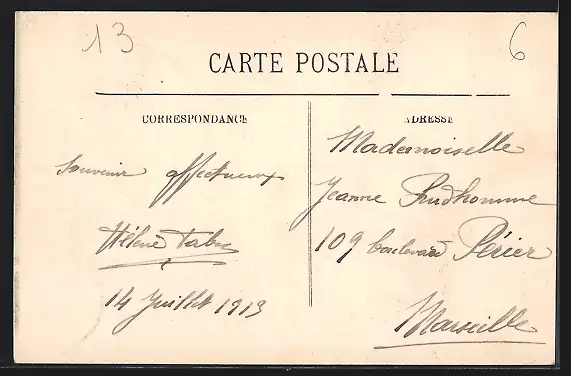 13
6
CARTE POSTALE
CORRESPONDANCE
ADRESSE
Souvenir affectueux
Hélène
14 Juillet 1913
Mademoiselle
Jeanne Prudhomme
109 boulevard Périer
Marseille